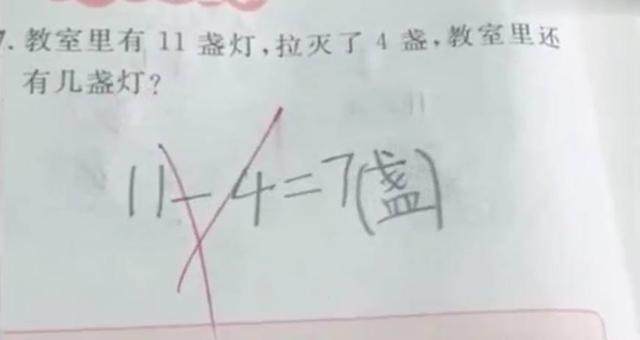 7. 教室里有 11 盏灯,拉灭了 4 盏,教室里还
有几盏灯?
11-4=7(盏)